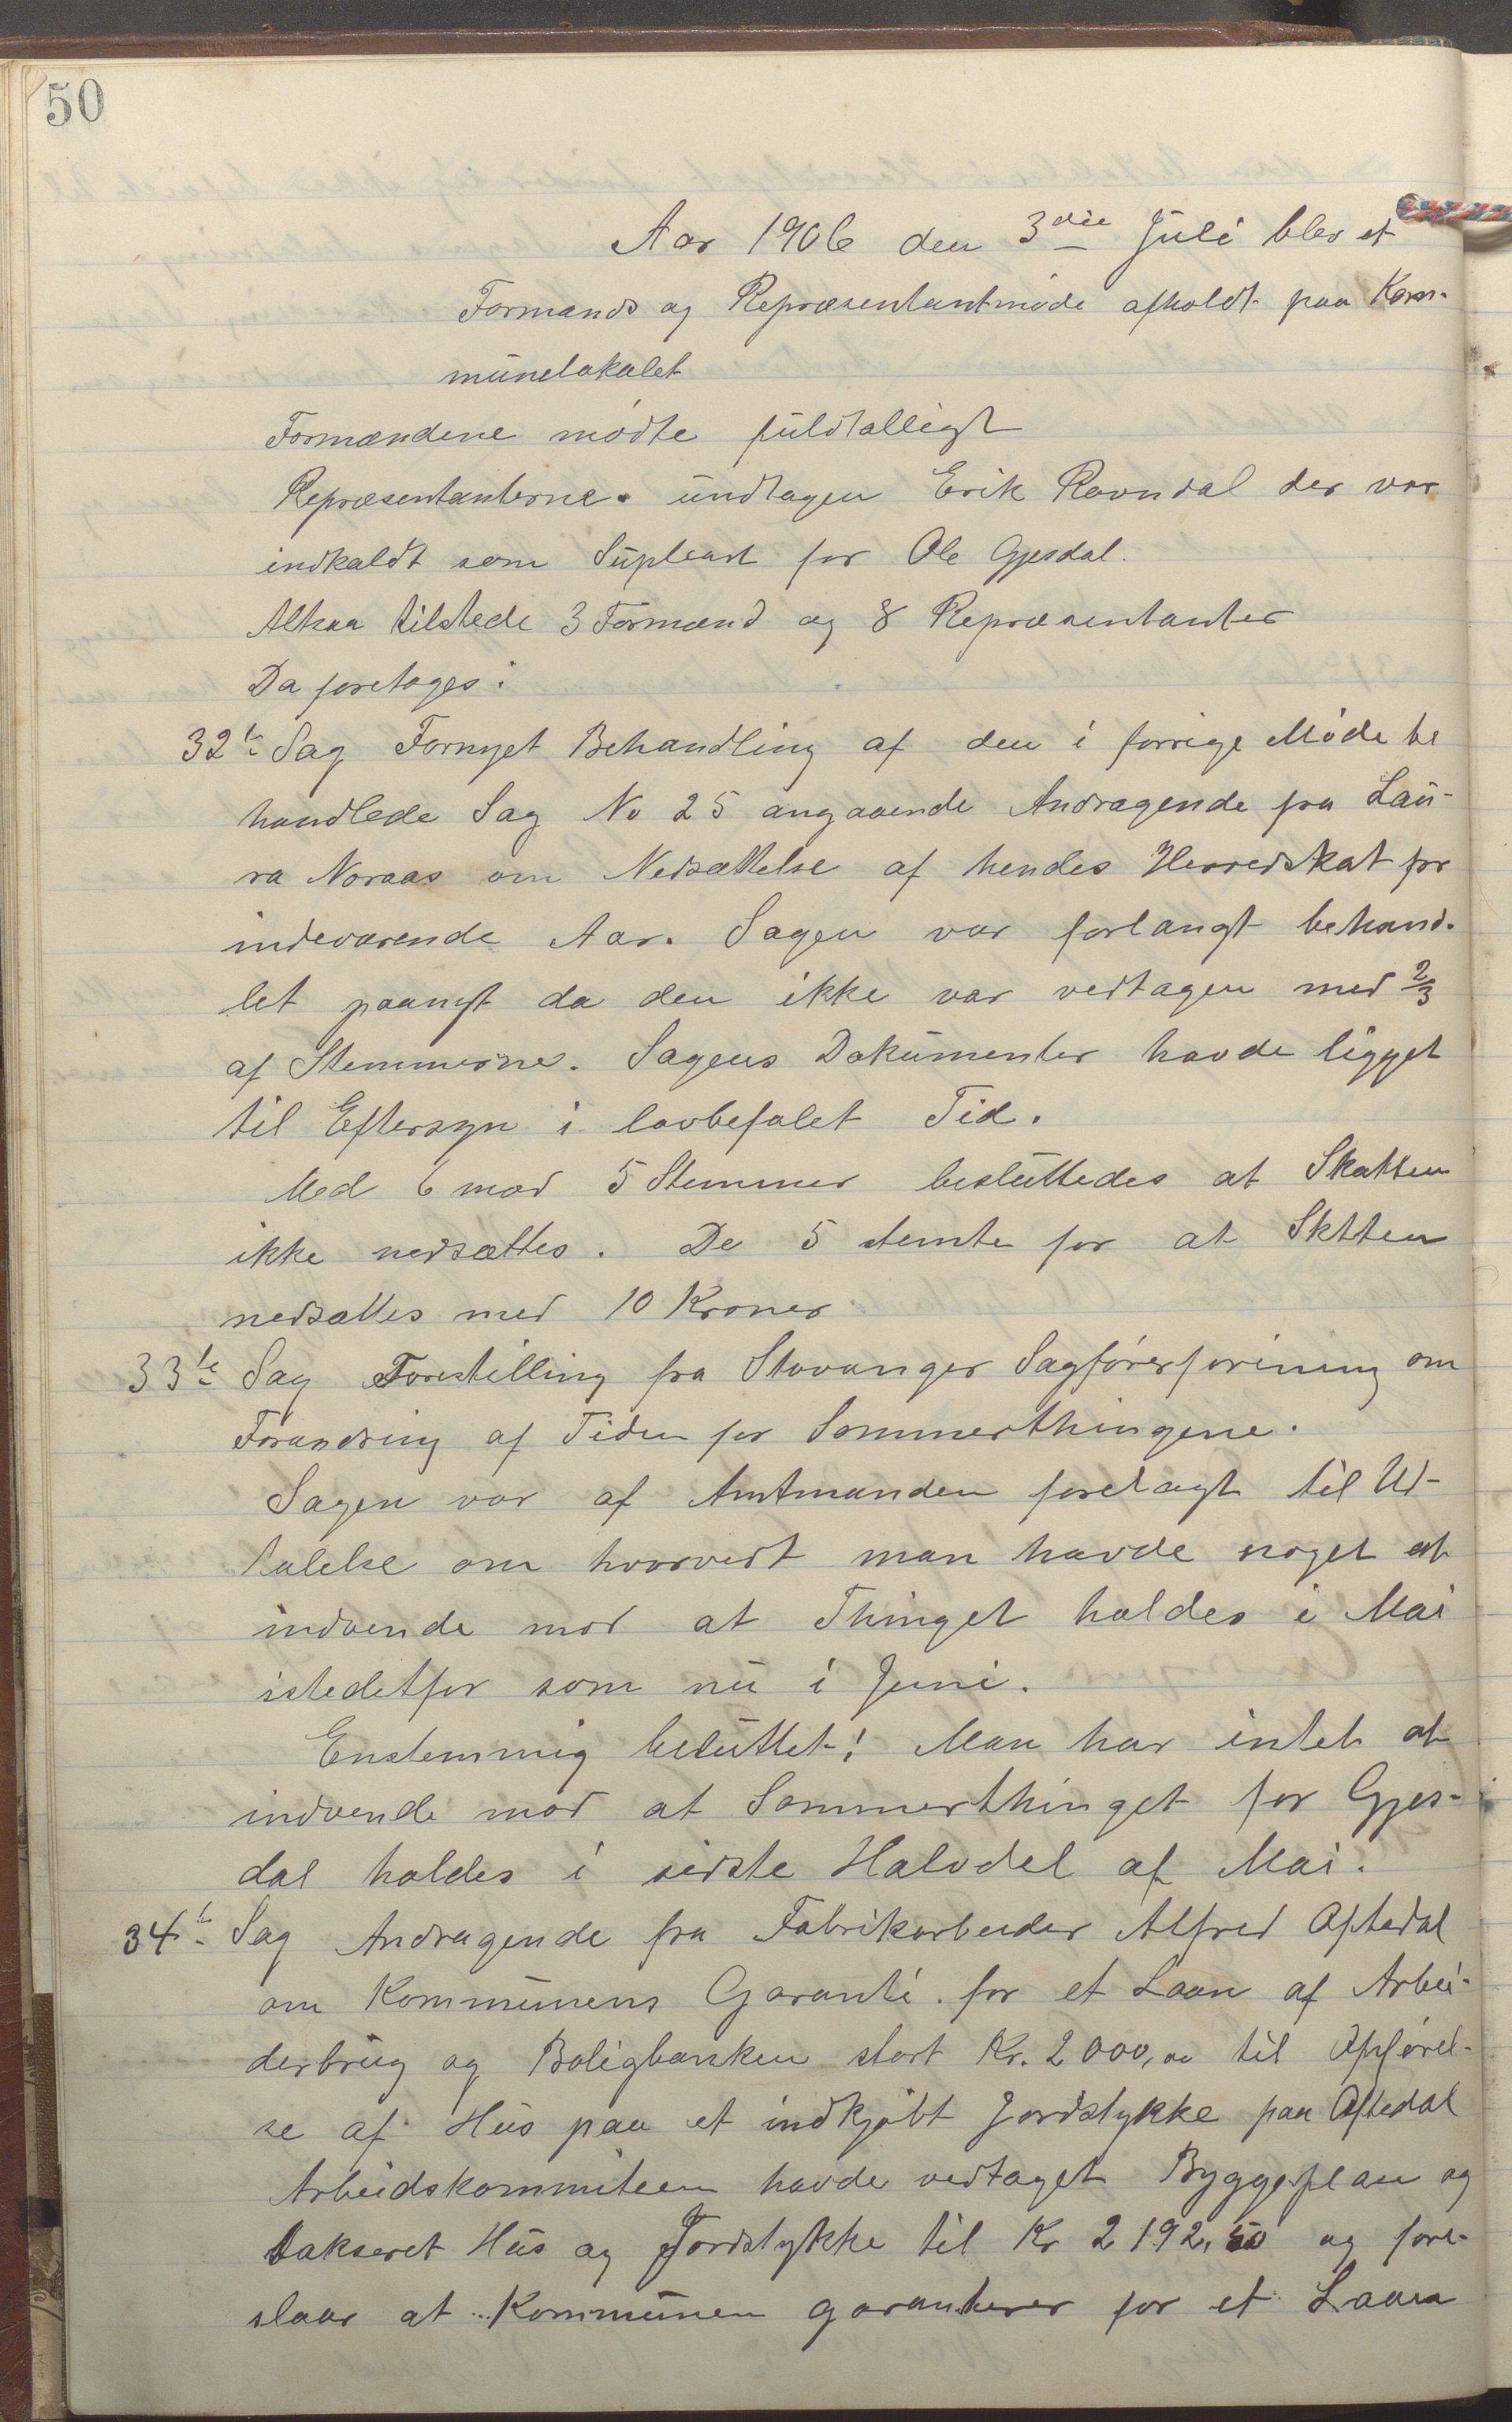 50
Aar 1906 den 3die Juli blev et
Formands og Repræsentantmøde afholdt paa Kom-
munelokalet
Formændene mødte fuldtalligt
Repræsentanterne. undtagen Erik Ravndal der var
indkaldt som Supleant for Ole Gjesdal.
Altsaa tilstede 3 Formænd og 8 Repræsentanter
Da foretoges:
32te Sag Fornyet Behandling af den i forrige Møde be
handlede Sag No 25 angaaende Andragende fra Lau-
ra Noraas om Nedsættelse af hendes Herredskat for
indeværende Aar. Sagen var forlangt behand-
let paanyt da den ikke var vedtagen med 2/3
af Stemmerne. Sagens Dokumenter havde ligget
til Eftersyn i lovbefalet Tid.
Med 6 mod 5 Stemmer besluttedes at Skatten
ikke nedsættes. De 5 stemte for at Sktten
nedsattes med 10 Kroner
33te Sag Forestilling fra Stavanger Sagførerforening om
Forandring af Tiden for Sommerthingene.
Sagen var af Amtmanden forelagt til Ut-
talelse om hvorvidt man havde noget at
indvende mod at Thinget holdes i Mai
istedetfor som nu i Juni.
Enstemmig besluttet: Man har intet at
indvende mod at Sommerthinget for Gjes-
dal holdes i sidste Halvdel af Mai.
34te Sag Andragende fra Fabrikarbeider Alfred Oftedal
om Kommunens Garanti for et Laan af Arbei-
derbrug og Boligbanken stort Kr. 2000,00 til Opførel-
se af Hus paa et indkjøbt Jordstykke paa Oftedal
Arbeidskommiteen havde vedtaget Byggeplan og
takseret Hus og Jordstykke til Kr 2192,50 og fore-
slaar at Kommunen garanterer for et Laan